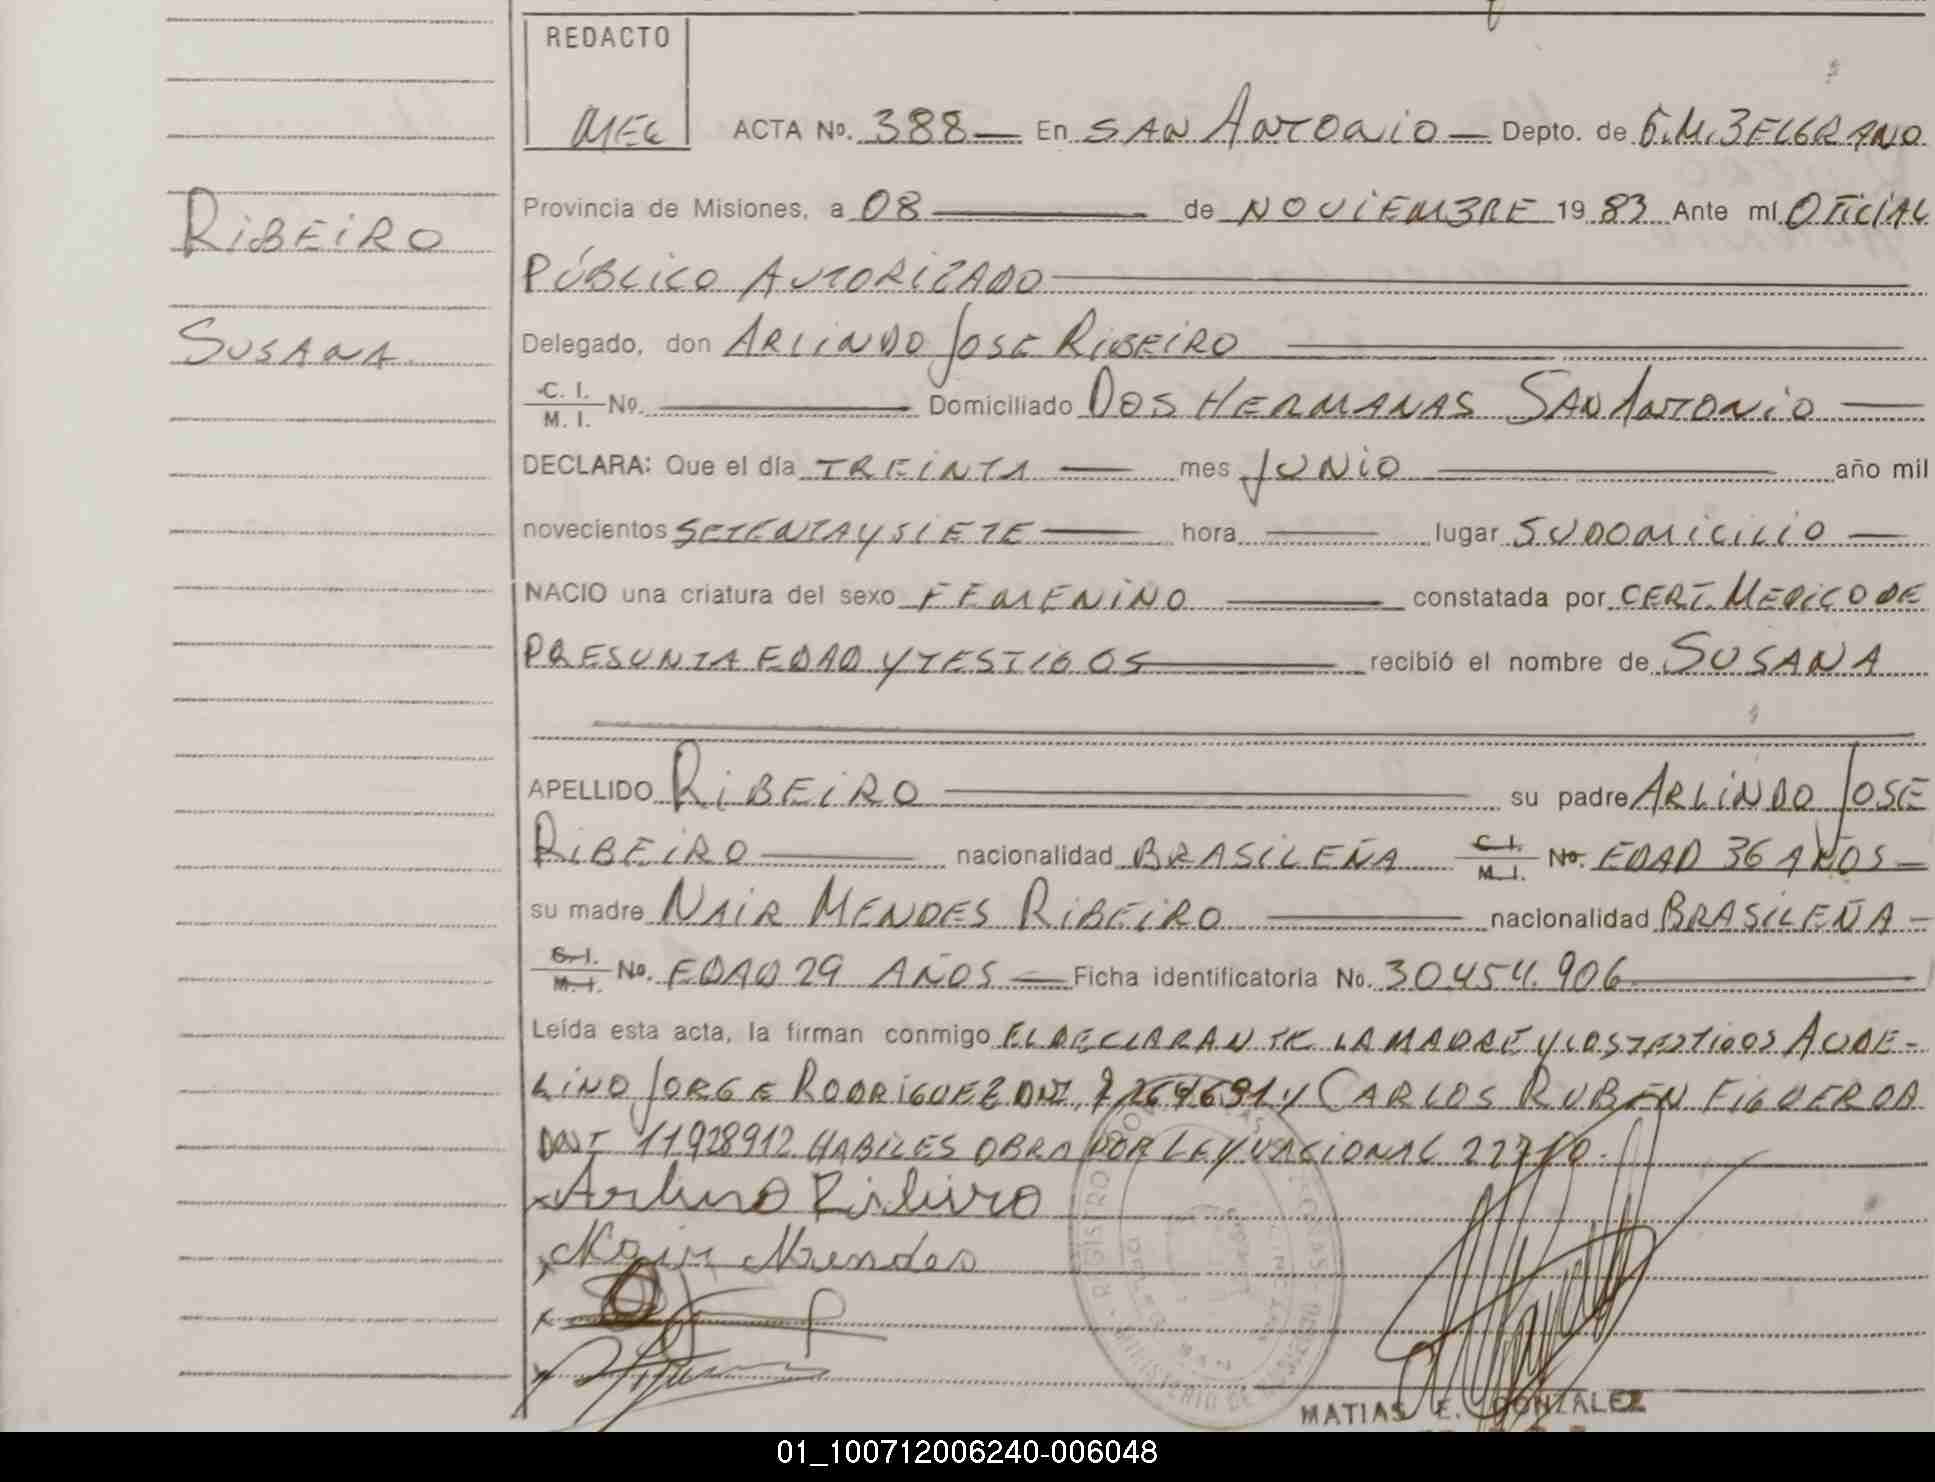 REDACTO
MEG
ACTA No. 388 En SAN ANTONIO Depto. de G.M. BELGRANO
Provincia de Misiones, a 08 de NOVIEMBRE 1983 Ante mí OFICIAL
PÚBLICO AUTORIZADO
RIBEIRO
SUSANA
Delegado, don ARLINDO JOSE RIBEIRO
C. I.
M. I. No. Domiciliado DOS HERMANAS SAN ANTONIO
DECLARA: Que el día TREINTA mes JUNIO año mil
novecientos SETENTA Y SIETE hora lugar SU DOMICILIO
NACIO una criatura del sexo FEMENINO constatada por CERT. MEDICO DE
PRESUNTA EDAD Y TESTIGOS recibió el nombre de SUSANA
APELLIDO RIBEIRO su padre ARLINDO JOSE
RIBEIRO nacionalidad BRASILEÑA C. I. M. I. No. EDAD 36 AÑOS
su madre NAIR MENDES RIBEIRO nacionalidad BRASILEÑA
C. I. M. I. No. EDAD 29 AÑOS Ficha identificatoria No. 30.454.906
Leída esta acta, la firman conmigo EL DECLARANTE LA MADRE Y LOS TESTIGOS
JORGE RODRIGUEZ DNI Y CARLOS RUBEN FIGUEROA
DNI 11928912 HABILES OBRA POR LEY NACIONAL
Arlindo Ribeiro
Nair Mendes
REGISTRO
MINISTERIO DE
MATIAS E. GONZALEZ
01_100712006240-006048